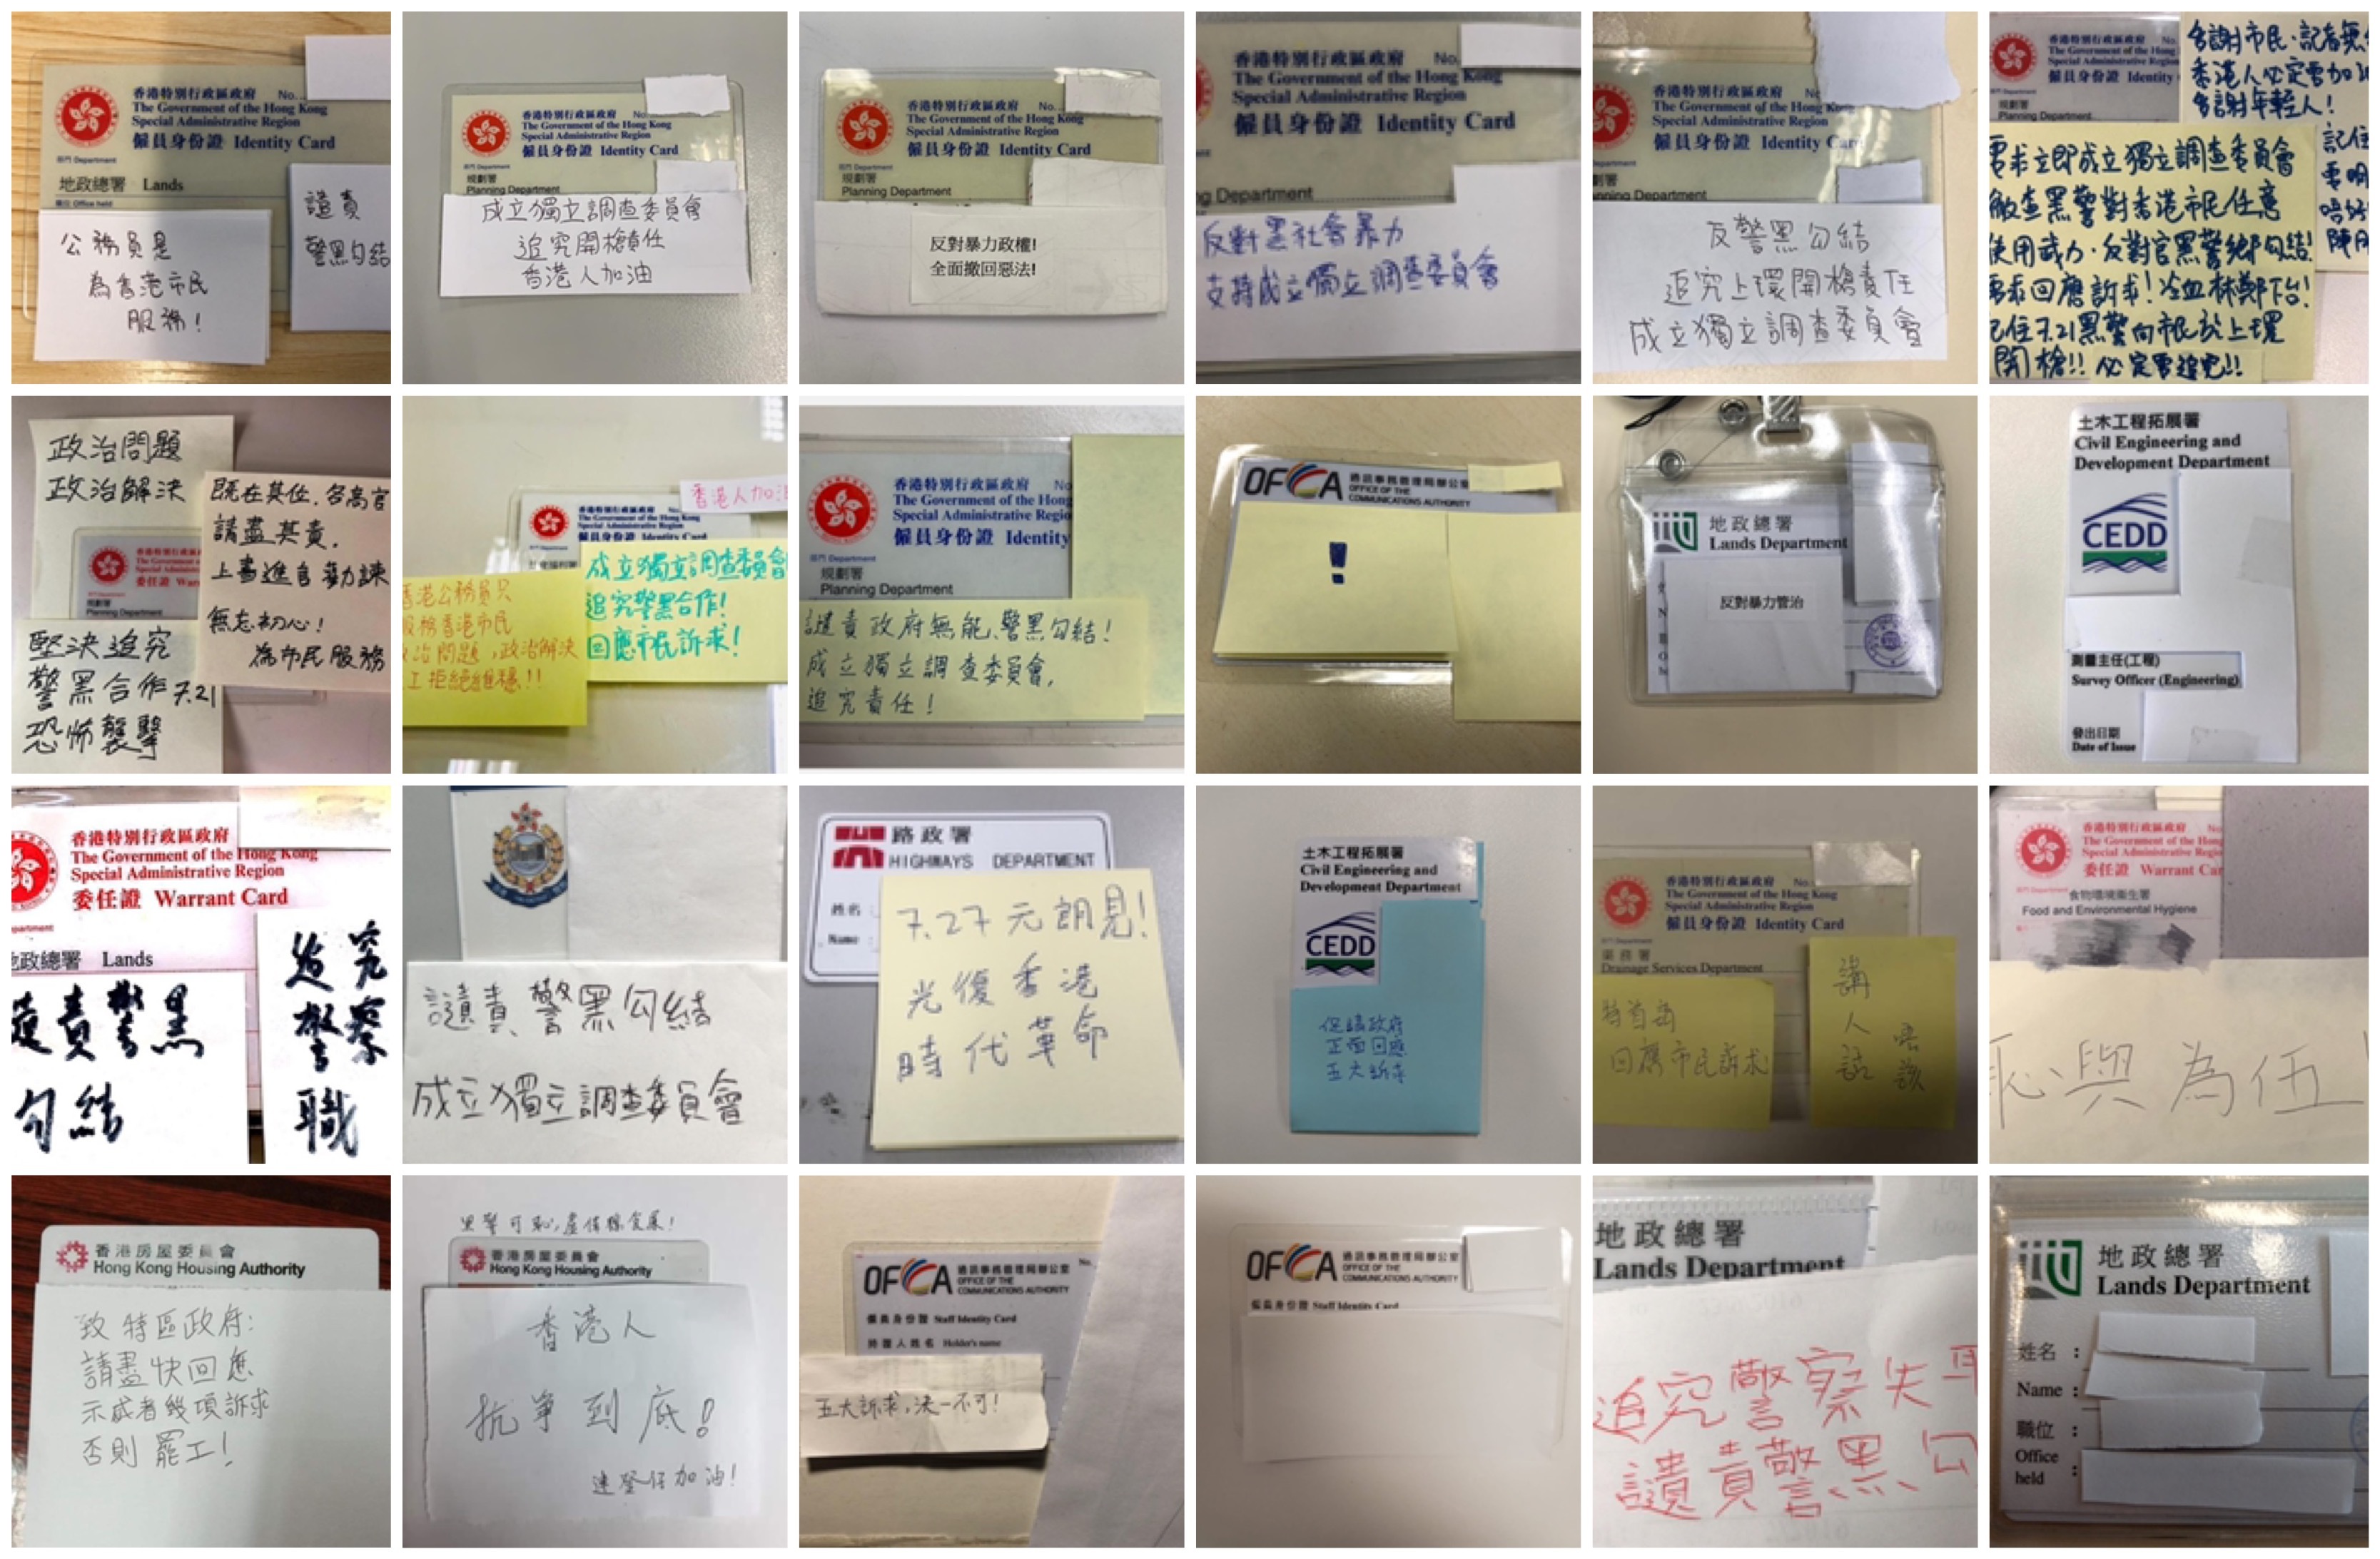 香港特別行政區政府 No.
The Government of the Hong Kong
Special Administrative Region
僱員身份證 Identity Card
部門 Department
地政總署 Lands
職位 Office held
公務員是
為香港市民
服務!
譴責
警黑勾結
香港特別行政區政府 No.
The Government of the Hong Kong
Special Administrative Region
僱員身份證 Identity Card
部門 Department
規劃署
Planning Department
成立獨立調查委員會
追究開槍責任
香港人加油
香港特別行政區政府 No.
The Government of the Hong Kong
Special Administrative Region
僱員身份證 Identity Card
部門 Department
規劃署
Planning Department
反對暴力政權!
全面撤回惡法!
香港特別行政區政府 No.
The Government of the Hong Kong
Special Administrative Region
僱員身份證 Identity Card
Department
反對黑社會暴力
支持成立獨立調查委員會
香港特別行政區政府
The Government of the Hong Kong
Special Administrative Region
僱員身份證 Identity Card
部門 Department
劃署
Planning Department
反警黑勾結
追究上環開槍責任
成立獨立調查委員會
香港特別行政區政府
The Government of the Hong Kong
Special Administrative Region
僱員身份證 Identity
規劃署
Planning Department
多謝市民、記者
香港人必定要加油
多謝年輕人!
記住
要求立即成立獨立調查委員會
徹查黑警對香港市民任意
使用武力、反對官黑警鄉勾結!
要求回應訴求!冷血林鄭下台!
記住7.21黑警向市民於上環
開槍!! 必定要追究!!
政治問題
政治解決
既在其位,各高官
請盡其責,
上書進言勸諫
無忘初心!
為市民服務
香港特別行政區
The Government of the
Special Administrative
委任證
規劃署
Planning Department
堅決追究
警黑合作7.21
恐怖襲擊
香港人加油
香港特別行政區政府
The Government of the Hong Kong
Special Administrative Region
僱員身份證 Identity Card
香港公務員只
服務香港市民
政治問題,政治解決
工拒絕維穩!!
成立獨立調查委員會
追究警黑合作!
回應市民訴求!
香港特別行政區政府 No
The Government of the Hong
Special Administrative Regio
僱員身份證 Identity
部門 Department
規劃署
Planning Department
譴責政府無能、警黑勾結!
成立獨立調查委員會,
追究責任!
OFCA 通訊事務管理局辦公室
OFFICE OF THE
COMMUNICATIONS AUTHORITY
!
地政總署
Lands Department
反對暴力管治
土木工程拓展署
Civil Engineering and
Development Department
CEDD
測量主任(工程)
Survey Officer (Engineering)
發出日期
Date of Issue
香港特別行政區政府
The Government of the Hong Kong
Special Administrative Region
委任證 Warrant Card
partment
地政總署 Lands
譴責警黑
勾結
追究
警察
職
譴責警黑勾結
成立獨立調查委員會
路政署
HIGHWAYS DEPARTMENT
姓名
Name
7.27元朗見!
光復香港
時代革命
土木工程拓展署
Civil Engineering and
Development Department
CEDD
促請政府
正面回應
五大訴求
香港特別行政區政府 No.
The Government of the Hong Kong
Special Administrative Region
僱員身份證 Identity Card
部門 Department
渠務署
Drainage Services Department
特首
回應市民訴求
講人話
唔該
香港特別行政區政府 No
The Government of the Hong
Special Administrative Regio
委任證 Warrant Car
部門 Department
食物環境衛生署
Food and Environmental Hygiene
恥與為伍!
香港房屋委員會
Hong Kong Housing Authority
致特區政府:
請盡快回應
示威者幾項訴求
否則罷工!
香港房屋委員會
Hong Kong Housing Authority
香港人
抗爭到底!
連登仔加油!
OFCA 通訊事務管理局辦公室 No.
OFFICE OF THE
COMMUNICATIONS AUTHORITY
僱員身份證 Staff Identity Card
持證人姓名 Holder's name
五大訴求,決一不可!
OFCA 通訊事務管理局辦公室
OFFICE OF THE
COMMUNICATIONS AUTHORITY
僱員身份證 Staff Identity Card
地政總署
Lands Department
追究警察失
譴責警黑勾
地政總署
Lands Department
姓名 :
Name :
職位 :
Office
held :